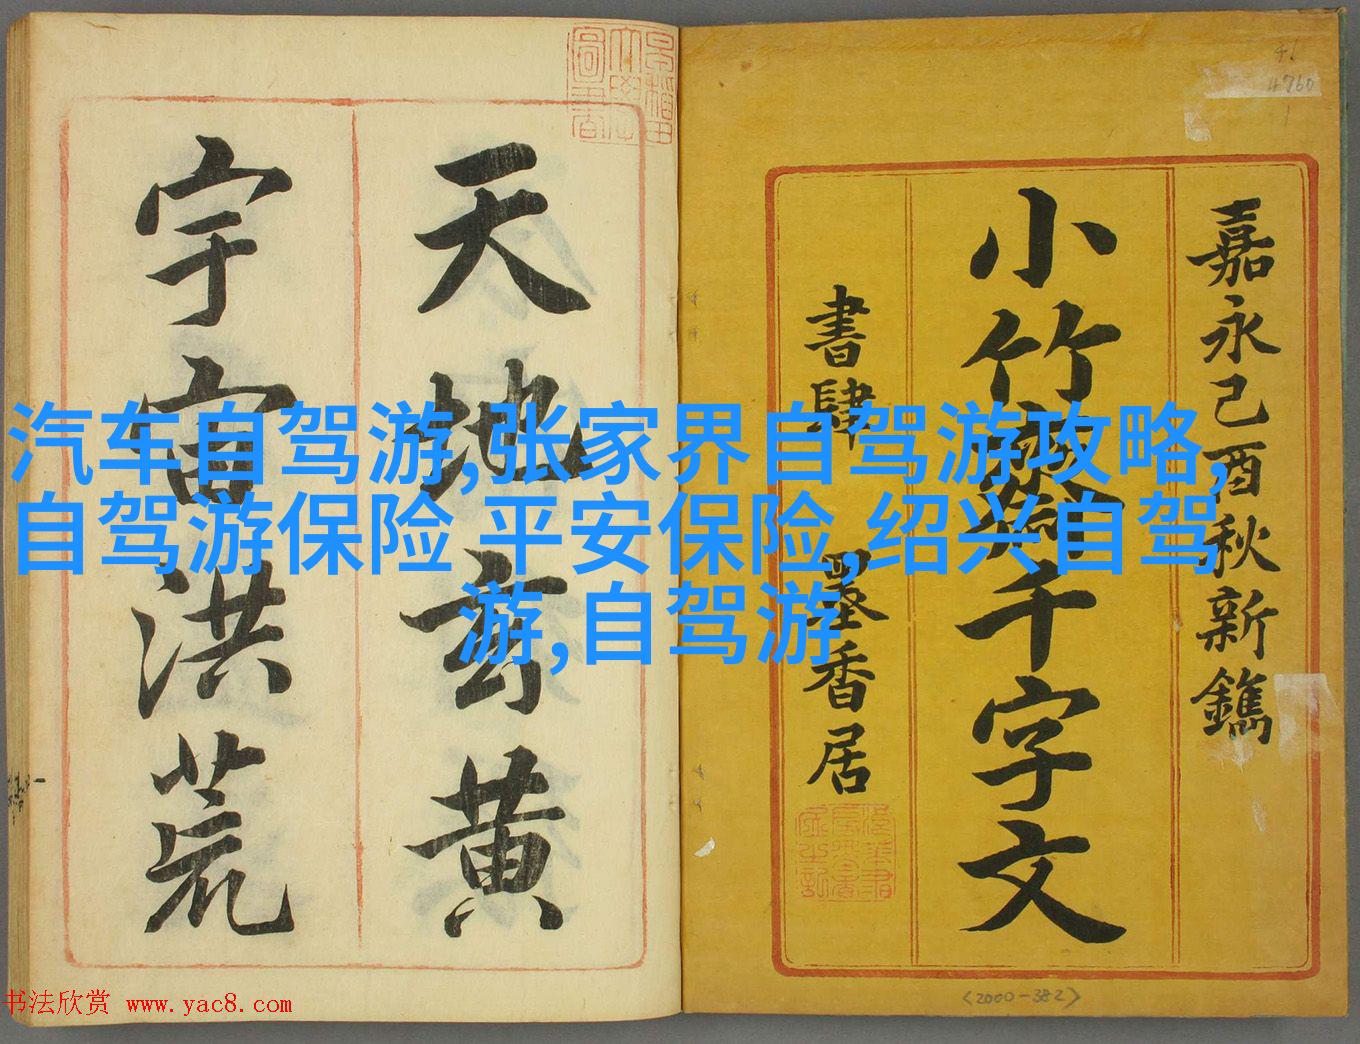 嘉永己酉秋新鐫
小竹齋千字文
書肆 墨香居
天地玄黃
宇宙洪荒
汽车自驾游,张家界自驾游攻略,
自驾游保险,平安保险,绍兴自驾
游,自驾游
46
4760
<2000-382>
书法欣赏 www.yac8.com